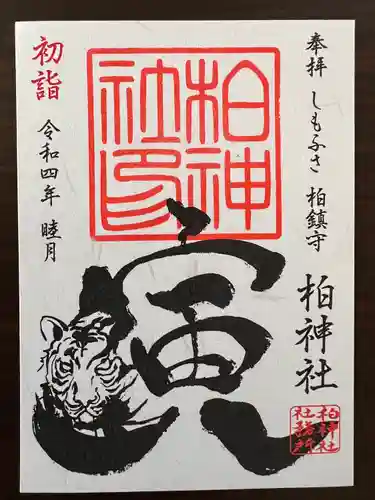 奉拝 しもふさ 柏鎮守
柏神社
柏神社
社務所
柏神
社印
寅
初詣
令和四年 睦月